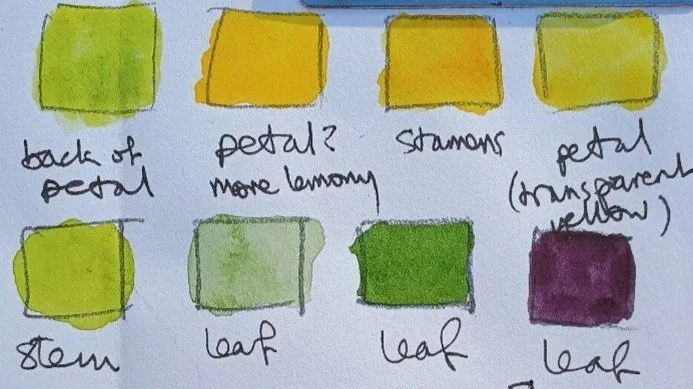 back of
petal
petal?
more lemony
stamens
petal
(transparent
yellow)
stem
leaf
leaf
leaf